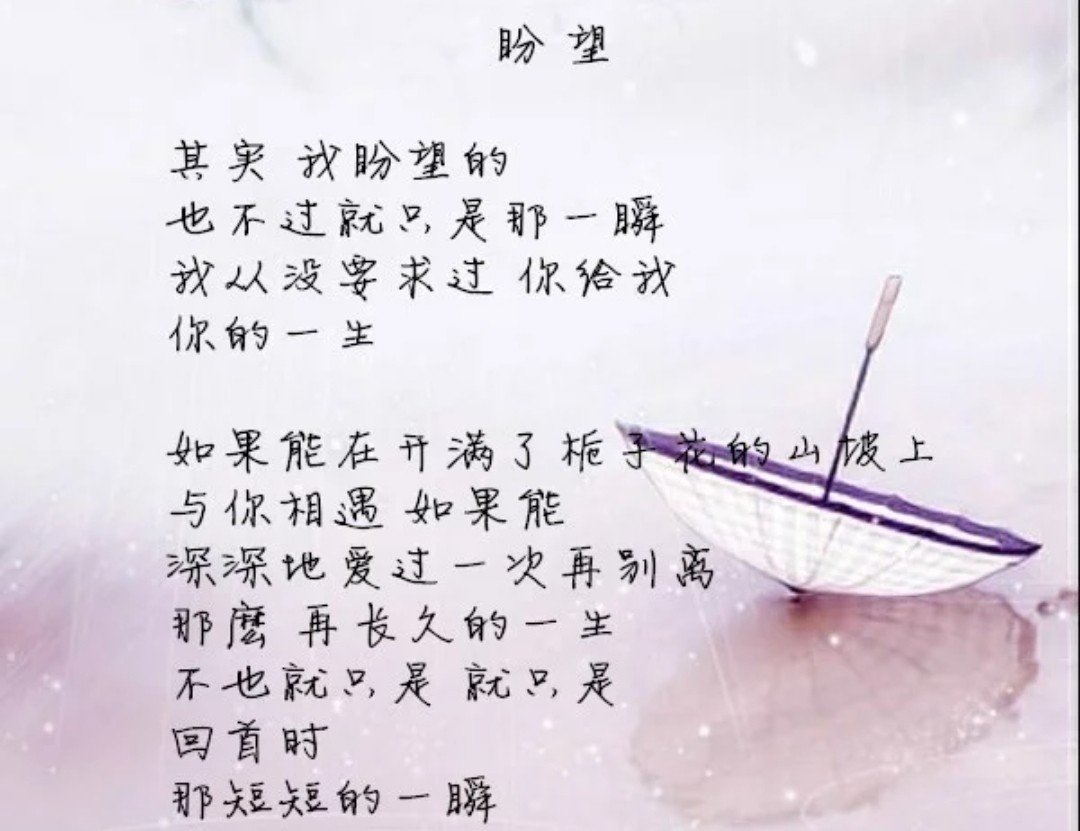 盼望
其实 我盼望的
也不过就只是那一瞬
我从没要求过 你给我
你的一生
如果能在开满了栀子花的山坡上
与你相遇 如果能
深深地爱过一次再别离
那麽 再长久的一生
不也就只是 就只是
回首时
那短短的一瞬